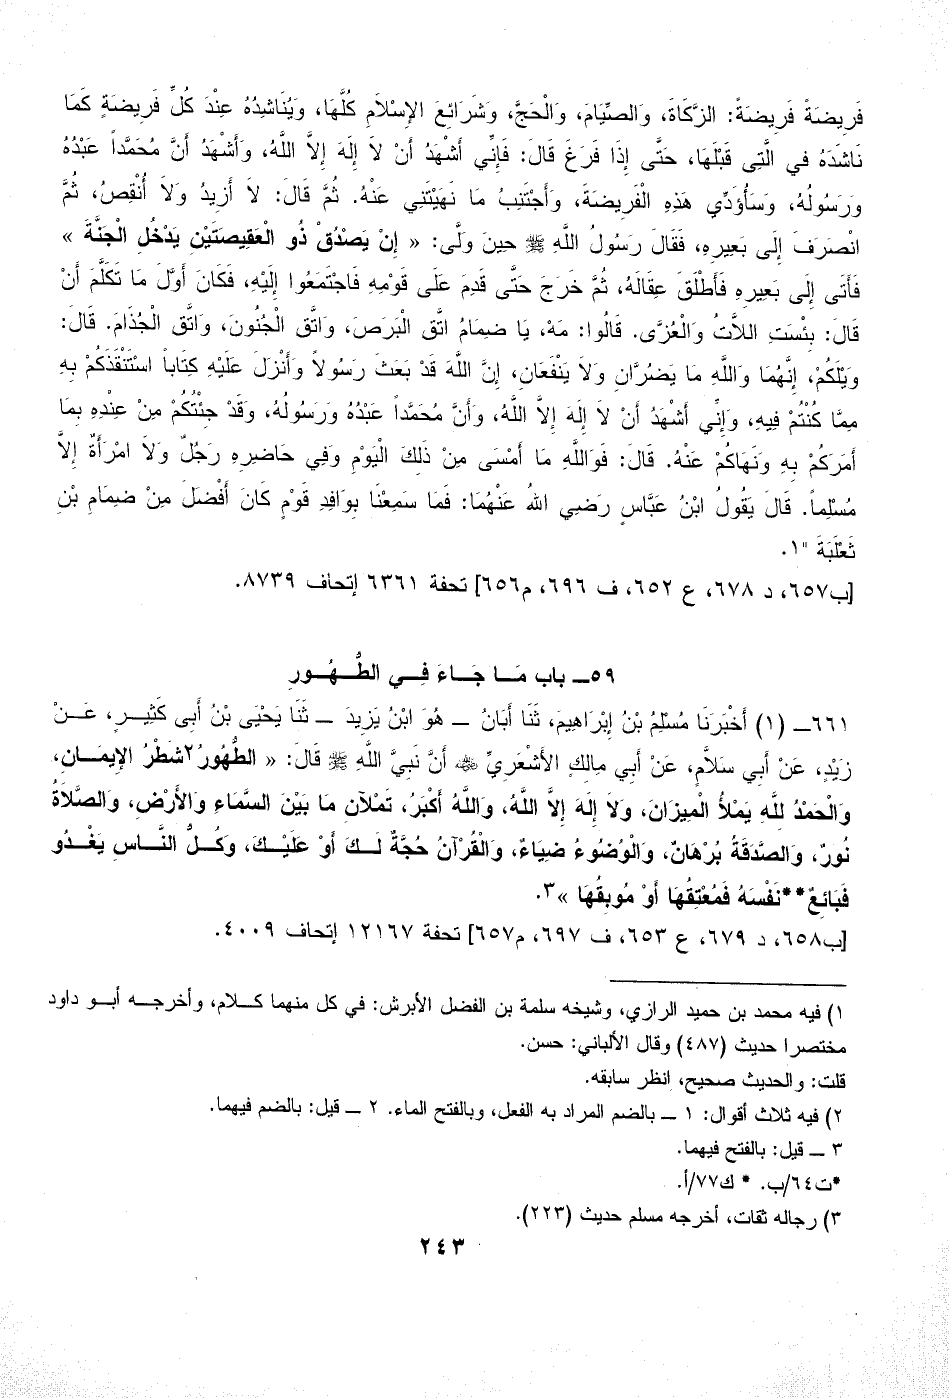 فَرِيضَةً فَرِيضَةً: الزَّكَاةَ، وَالصِّيَامَ، وَالْحَجَّ، وَشَرَائِعَ الإِسْلاَمِ كُلَّهَا، وَيُنَاشِدُهُ عِنْدَ كُلِّ فَرِيضَةٍ كَمَا
نَاشَدَهُ فِي الَّتِي قَبْلَهَا، حَتَّى إِذَا فَرَغَ قَالَ: فَإِنِّي أَشْهَدُ أَنْ لاَ إِلَهَ إِلاَّ اللَّهُ، وَأَشْهَدُ أَنَّ مُحَمَّداً عَبْدُهُ
وَرَسُولُهُ، وَسَأُؤَدِّي هَذِهِ الْفَرِيضَةَ، وَأَجْتَنِبُ مَا نَهَيْتَنِي عَنْهُ. ثُمَّ قَالَ: لاَ أَزِيدُ وَلاَ أُنْقِصُ، ثُمَّ
انْصَرَفَ إِلَى بَعِيرِهِ، فَقَالَ رَسُولُ اللَّهِ ﷺ حِينَ وَلَّى: « إِنْ يَصْدُقْ ذُو الْعَقِيصَتَيْنِ يَدْخُلِ الْجَنَّةَ »
فَأَتَى إِلَى بَعِيرِهِ فَأَطْلَقَ عِقَالَهُ، ثُمَّ خَرَجَ حَتَّى قَدِمَ عَلَى قَوْمِهِ فَاجْتَمَعُوا إِلَيْهِ، فَكَانَ أَوَّلَ مَا تَكَلَّمَ أَنْ
قَالَ: بِئْسَتِ اللاَّتُ وَالْعُزَّى. قَالُوا: مَهْ، يَا ضِمَامُ اتَّقِ الْبَرَصَ، وَاتَّقِ الْجُنُونَ، وَاتَّقِ الْجُذَامَ. قَالَ:
وَيْلَكُمْ، إِنَّهُمَا وَاللَّهِ مَا يَضُرَّانِ وَلاَ يَنْفَعَانِ، إِنَّ اللَّهَ قَدْ بَعَثَ رَسُولاً وَأَنْزَلَ عَلَيْهِ كِتَاباً اسْتَنْقَذَكُمْ بِهِ
مِمَّا كُنْتُمْ فِيهِ، وَإِنِّي أَشْهَدُ أَنْ لاَ إِلَهَ إِلاَّ اللَّهُ، وَأَنَّ مُحَمَّداً عَبْدُهُ وَرَسُولُهُ، وَقَدْ جِئْتُكُمْ مِنْ عِنْدِهِ بِمَا
أَمَرَكُمْ بِهِ وَنَهَاكُمْ عَنْهُ. قَالَ: فَوَاللَّهِ مَا أَمْسَى مِنْ ذَلِكَ الْيَوْمِ وَفِي حَاضِرِهِ رَجُلٌ وَلاَ امْرَأَةٌ إِلاَّ
مُسْلِماً. قَالَ يَقُولُ ابْنُ عَبَّاسٍ رَضِي اللهُ عَنْهُمَا: فَمَا سَمِعْنَا بِوَافِدِ قَوْمٍ كَانَ أَفْضَلَ مِنْ ضِمَامِ بْنِ
ثَعْلَبَةَ "١.
[ب٦٥٧، د ٦٧٨، ع ٦٥٢، ف ٦٩٦، م٦٥٦] تحفة ٦٣٦١ إتحاف ٨٧٣٩.
٥٩ـ باب مَا جَاءَ فِي الطُّهُورِ
٦٦١ـ (١) أَخْبَرَنَا مُسْلِمُ بْنُ إِبْرَاهِيمَ، ثَنَا أَبَانُ ـ هُوَ ابْنُ يَزِيدَ ـ ثَنَا يَحْيَى بْنُ أَبِى كَثِيرٍ، عَنْ
زَيْدٍ، عَنْ أَبِي سَلاَّمٍ، عَنْ أَبِي مَالِكٍ الأَشْعَرِيِّ ﷺ أَنَّ نَبِيَّ اللَّهِ ﷺ قَالَ: « الطُّهُورُ٢شَطْرُ الإِيمَانِ،
وَالْحَمْدُ لِلَّهِ يَمْلأُ الْمِيزَانَ، وَلاَ إِلَهَ إِلاَّ اللَّهُ، وَاللَّهُ أَكْبَرُ، تَمْلآنِ مَا بَيْنَ السَّمَاءِ وَالأَرْضِ، وَالصَّلاَةُ
نُورٌ، وَالصَّدَقَةُ بُرْهَانٌ، وَالْوُضُوءُ ضِيَاءٌ، وَالْقُرْآنُ حُجَّةٌ لَكَ أَوْ عَلَيْكَ، وَكُلُّ النَّاسِ يَغْدُو
فَبَائِعٌ**نَفْسَهُ فَمُعْتِقُهَا أَوْ مُوبِقُهَا »٣.
[ب٦٥٨، د ٦٧٩، ع ٦٥٣، ف ٦٩٧، م٦٥٧] تحفة ١٢١٦٧ إتحاف ٤٠٠٩.
١) فيه محمد بن حميد الرازي، وشيخه سلمة بن الفضل الأبرش: في كل منهما كلام، وأخرجه أبو داود
مختصرا حديث (٤٨٧) وقال الألباني: حسن.
قلت: والحديث صحيح، انظر سابقه.
٢) فيه ثلاث أقوال: ١ ـ بالضم المراد به الفعل، وبالفتح الماء. ٢ ـ قيل: بالضم فيهما.
٣ ـ قيل: بالفتح فيهما.
*ت٦٤/ب. * ك٧٧/أ.
٣) رجاله ثقات، أخرجه مسلم حديث (٢٢٣).
٢٤٣